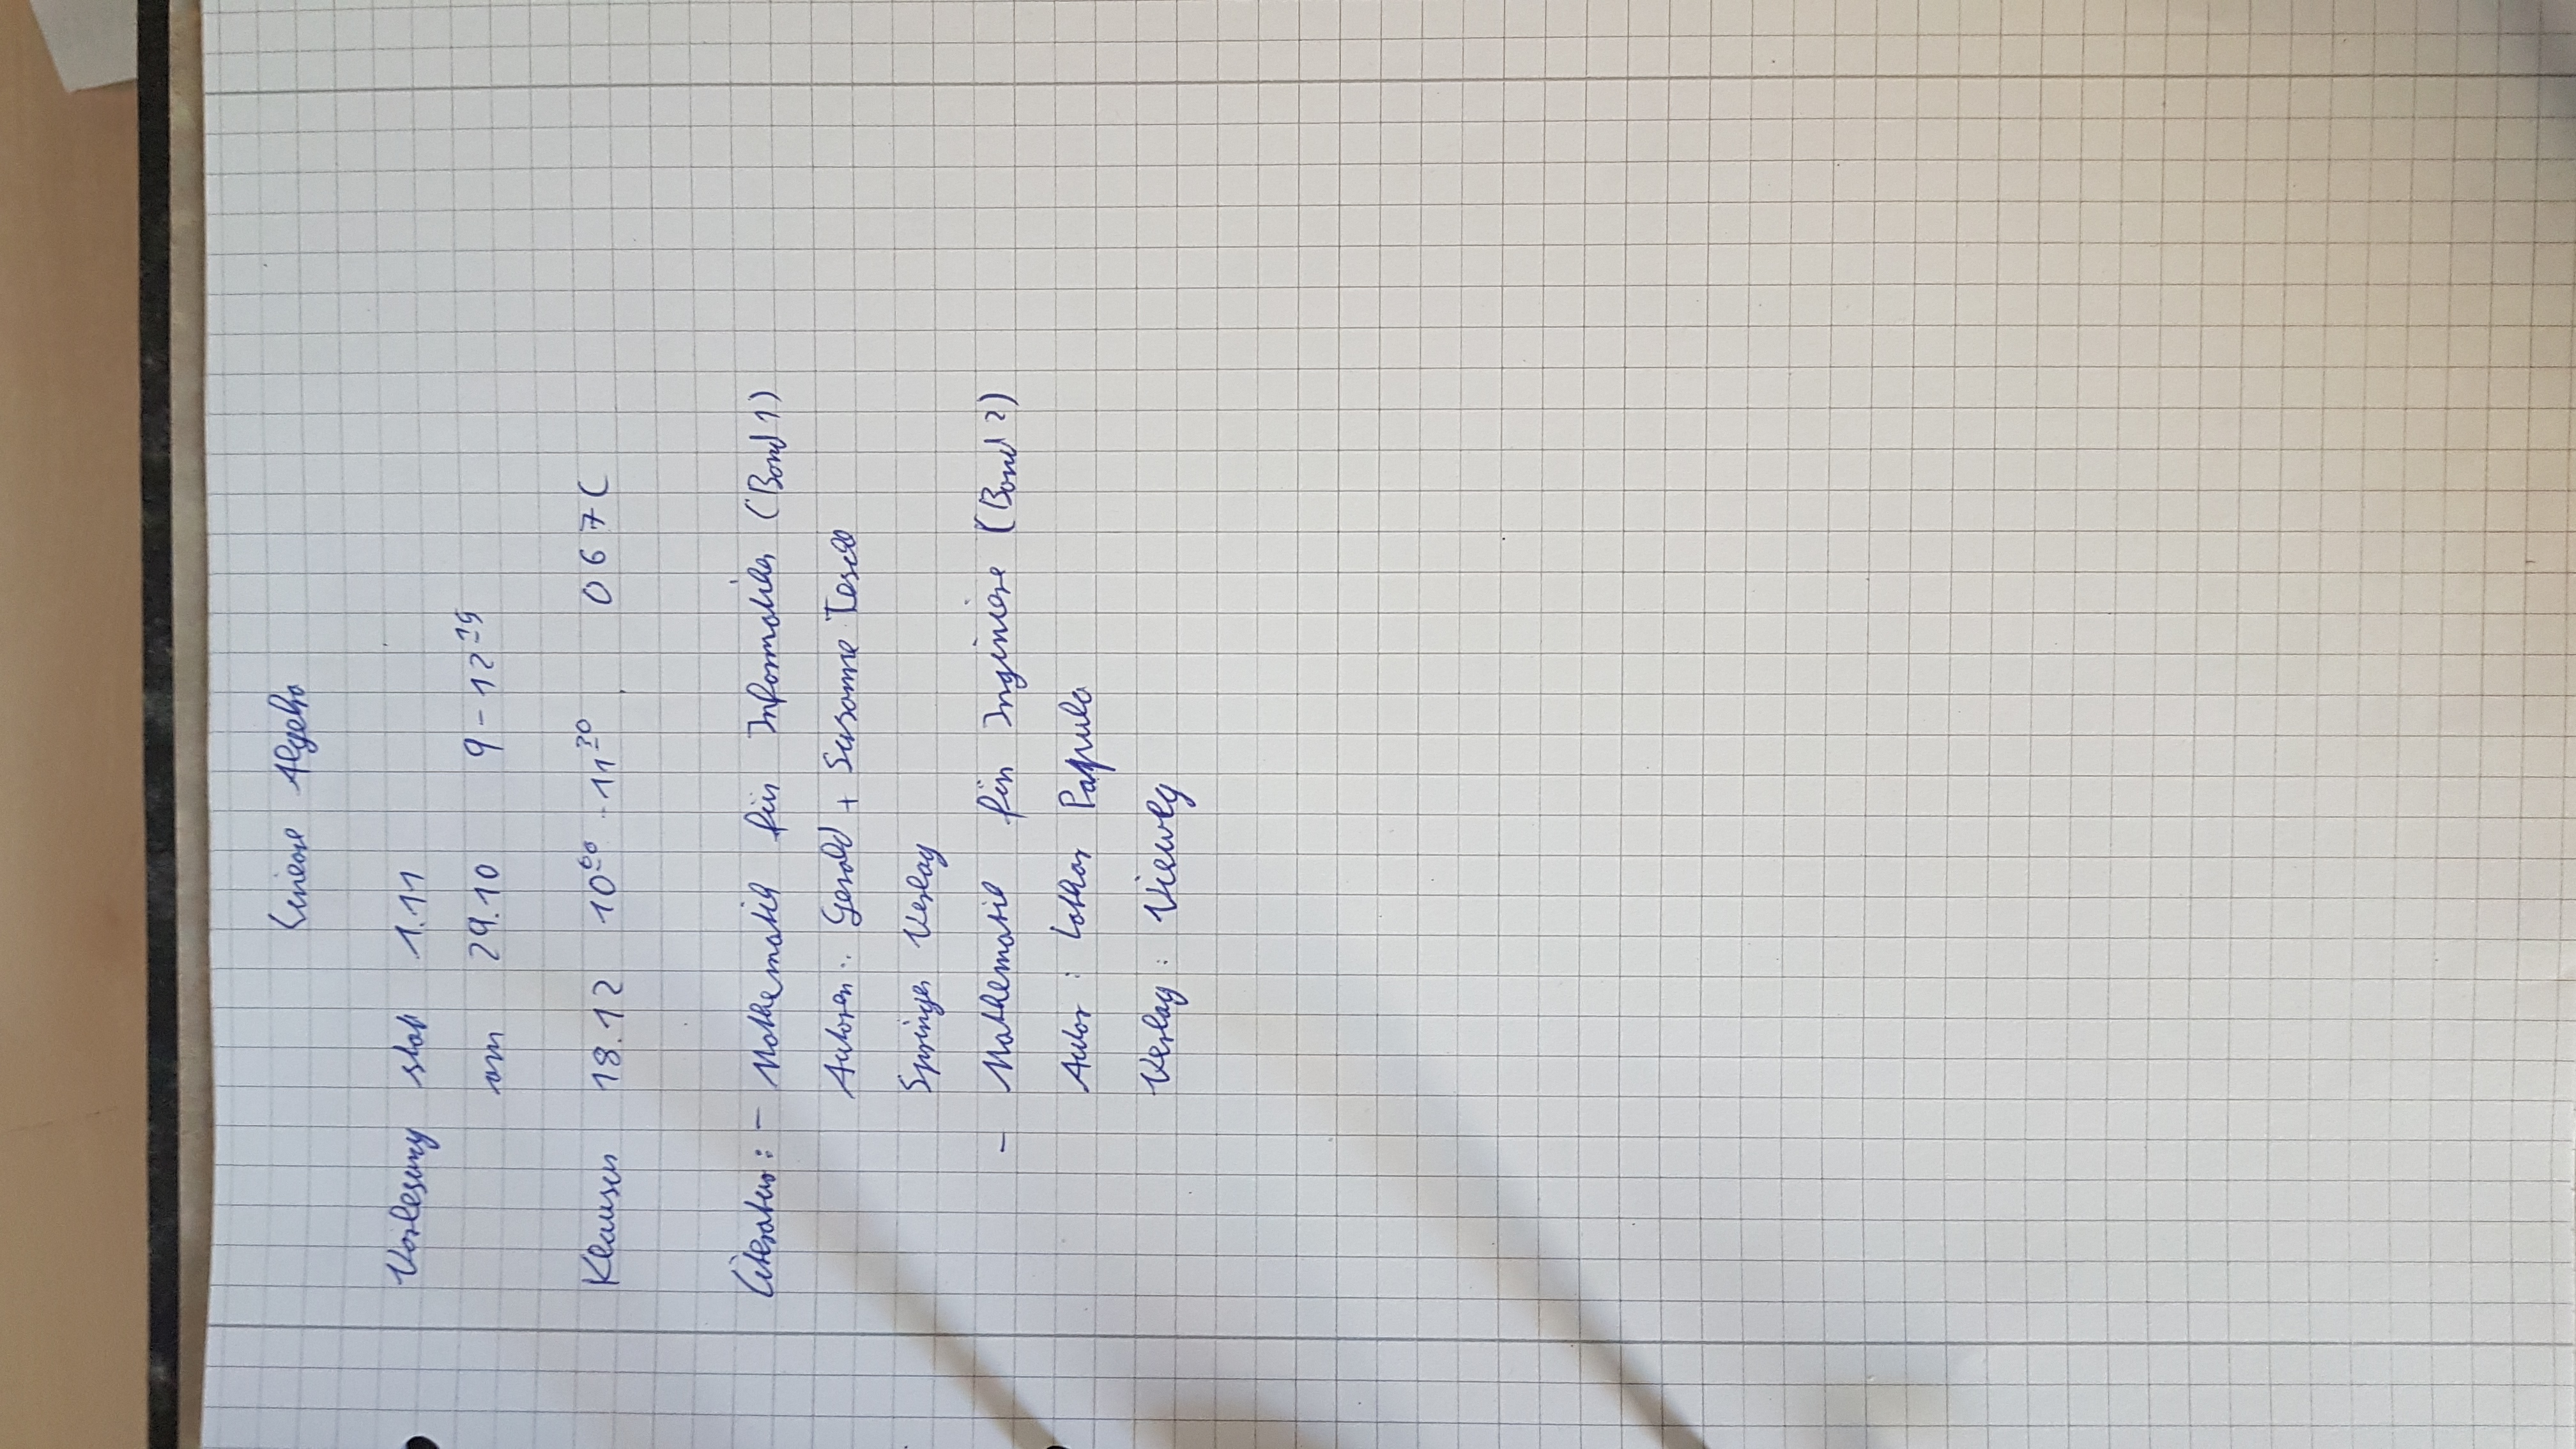 Lineare Algebra
Vorlesung statt 1.11
am 29.10 9 - 12 15
Klausur 18.12 10 00 - 11 30 067C
Literatur: - Mathematik für Informatiker (Band 1)
Autoren: Gerald + Susanne Teschl
Springer Verlag
- Mathematik für Inginiere (Band 2)
Autor: Lothar Papula
Verlag: Vieweg